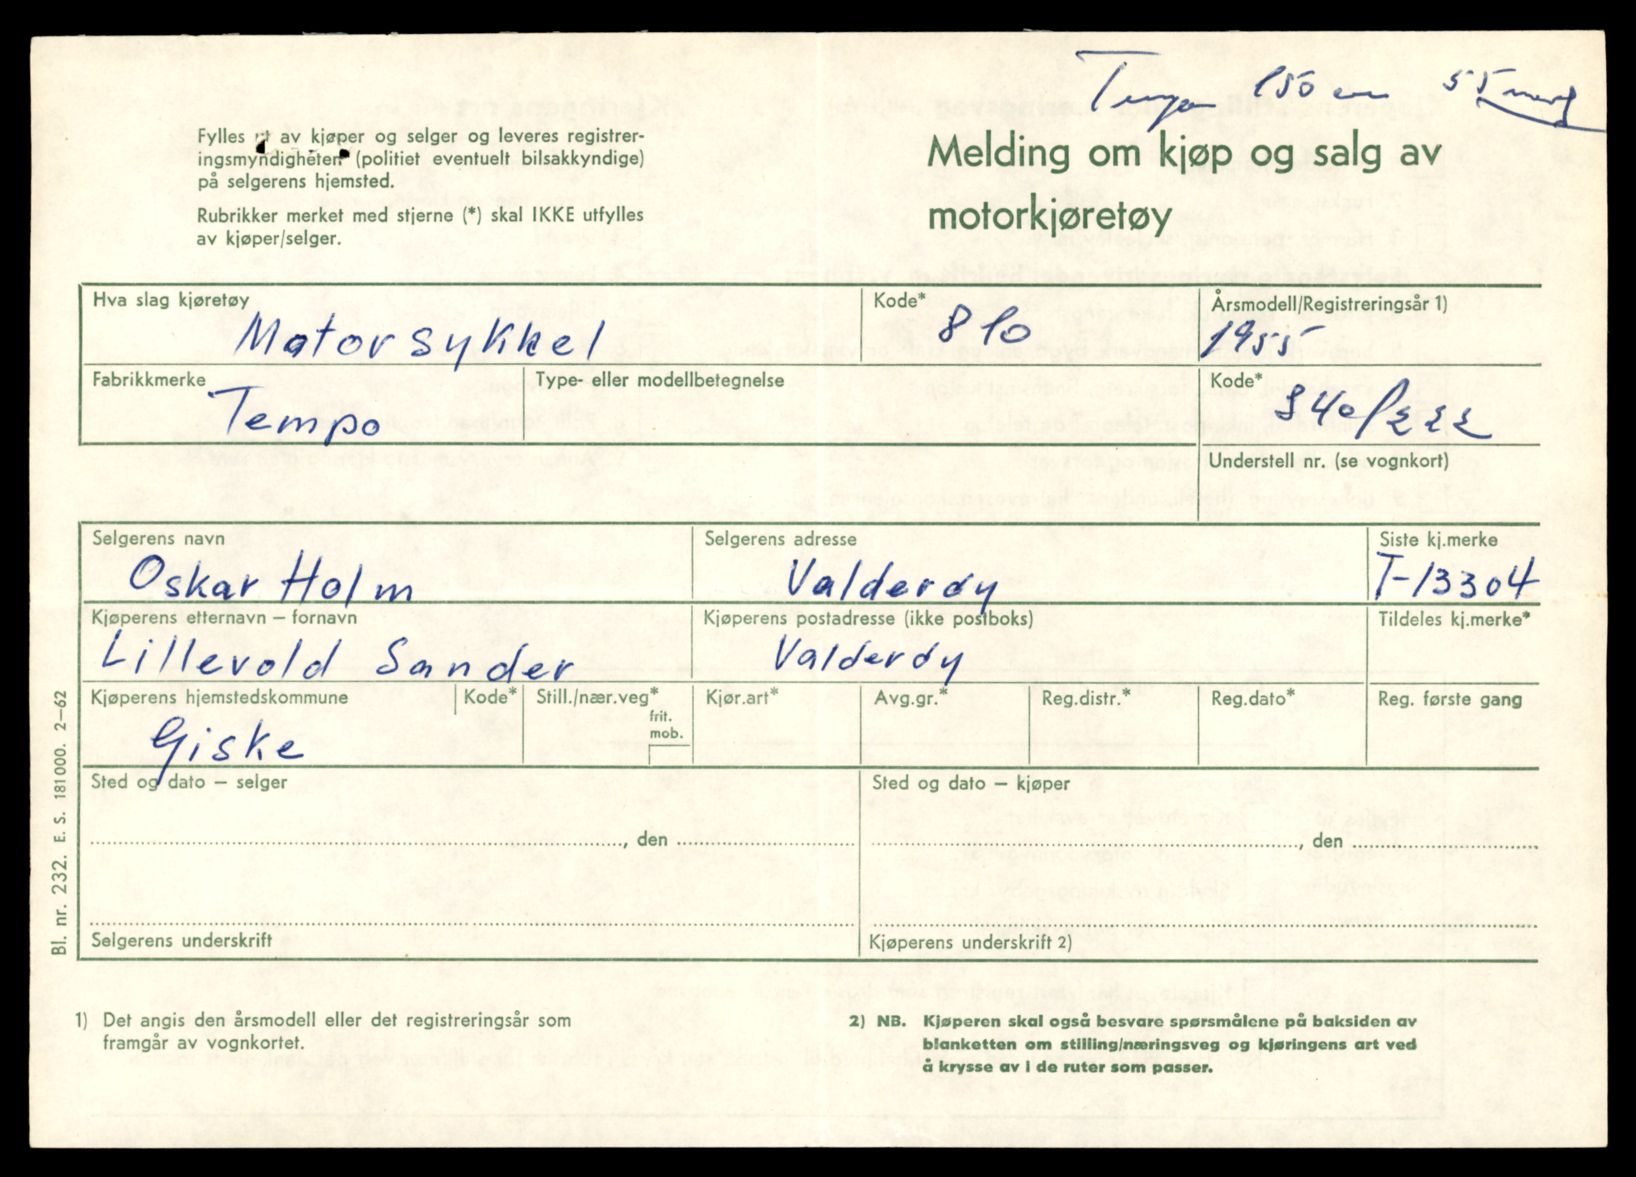 150 cm 55 mod
Fylles ut av kjøper og selger og leveres registrer-
ingsmyndigheten (politiet eventuelt bilsakkyndige)
på selgerens hjemsted.
Rubrikker merket med stjerne (*) skal IKKE utfylles
av kjøper/selger.
Melding om kjøp og salg av
motorkjøretøy
Hva slag kjøretøy Kode* Årsmodell/Registreringsår 1)
Motorsykkel 810 1955
Fabrikkmerke Type- eller modellbetegnelse Kode*
Tempo
Understell nr. (se vognkort)
Selgerens navn Selgerens adresse Siste kj.merke
Oskar Holm Valderøy T-13304
Kjøperens etternavn – fornavn Kjøperens postadresse (ikke postboks) Tildeles kj.merke*
Lillevold Sander Valderøy
Kjøperens hjemstedskommune Kode* Still./nær.veg* Kjør.art* Avg.gr.* Reg.distr.* Reg.dato* Reg. første gang
frit.
mob.
Giske
Sted og dato – selger Sted og dato – kjøper
, den , den
Selgerens underskrift Kjøperens underskrift 2)
Bl. nr. 232. E. S. 181000. 2–62
1) Det angis den årsmodell eller det registreringsår som
framgår av vognkortet.
2) NB. Kjøperen skal også besvare spørsmålene på baksiden av
blanketten om stilling/næringsveg og kjøringens art ved
å krysse av i de ruter som passer.